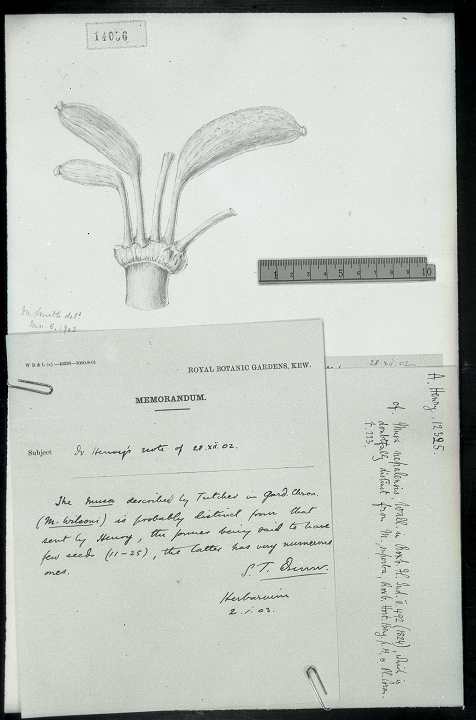 14036
M. Smith delt
Jan 6, 1903
1 5 10
28.xii.02
ROYAL BOTANIC GARDENS, KEW.
MEMORANDUM.
Subject Dr. Henry's note of 28.xii.02.
The Musa described by Tutcher in Gard. Chron.
(M. Wilsoni) is probably distinct from that
sent by Henry, the former being said to have
few seed (11-25), the latter has very numerous
ones.
S. T. Dunn.
Herbarium
2.i.03.
A. Henry 12325.
cf. Musa nepalensis Wall in Roxb. Fl. Ind. ii. 492 (1824), which is
doubtfully distinct from M. superba, Roxb. Hort. Beng. &
t. 223.